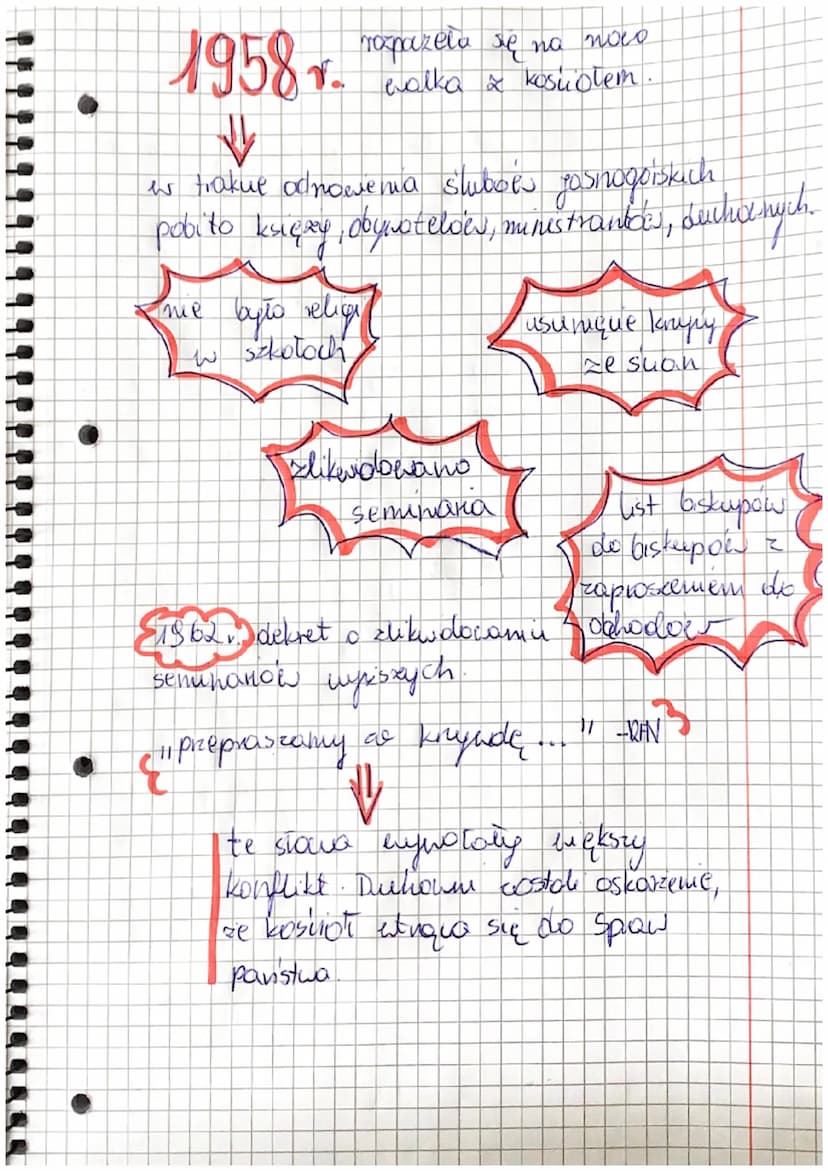 1958 r. rozpoczęła się na nowo
walka z kościołem.
w trakcie odnowienia ślubów jasnogórskich
pobito księży, obywatelów, ministrantów, duchownych.
nie było religi
w szkołach
usunięcie krzyży
ze ścian
zlikwidowano
seminaria
list biskupów
do biskupów z
zaproszeniem do
obchodów
1962 r. dekret o zlikwidowaniu
seminariów wyższych.
"przepraszamy za krzywdę ..." -RFN
te słowa wywołały większy
konflikt. Duchowni zostali oskarżenie,
że kościół wtrąca się do spraw
państwa.